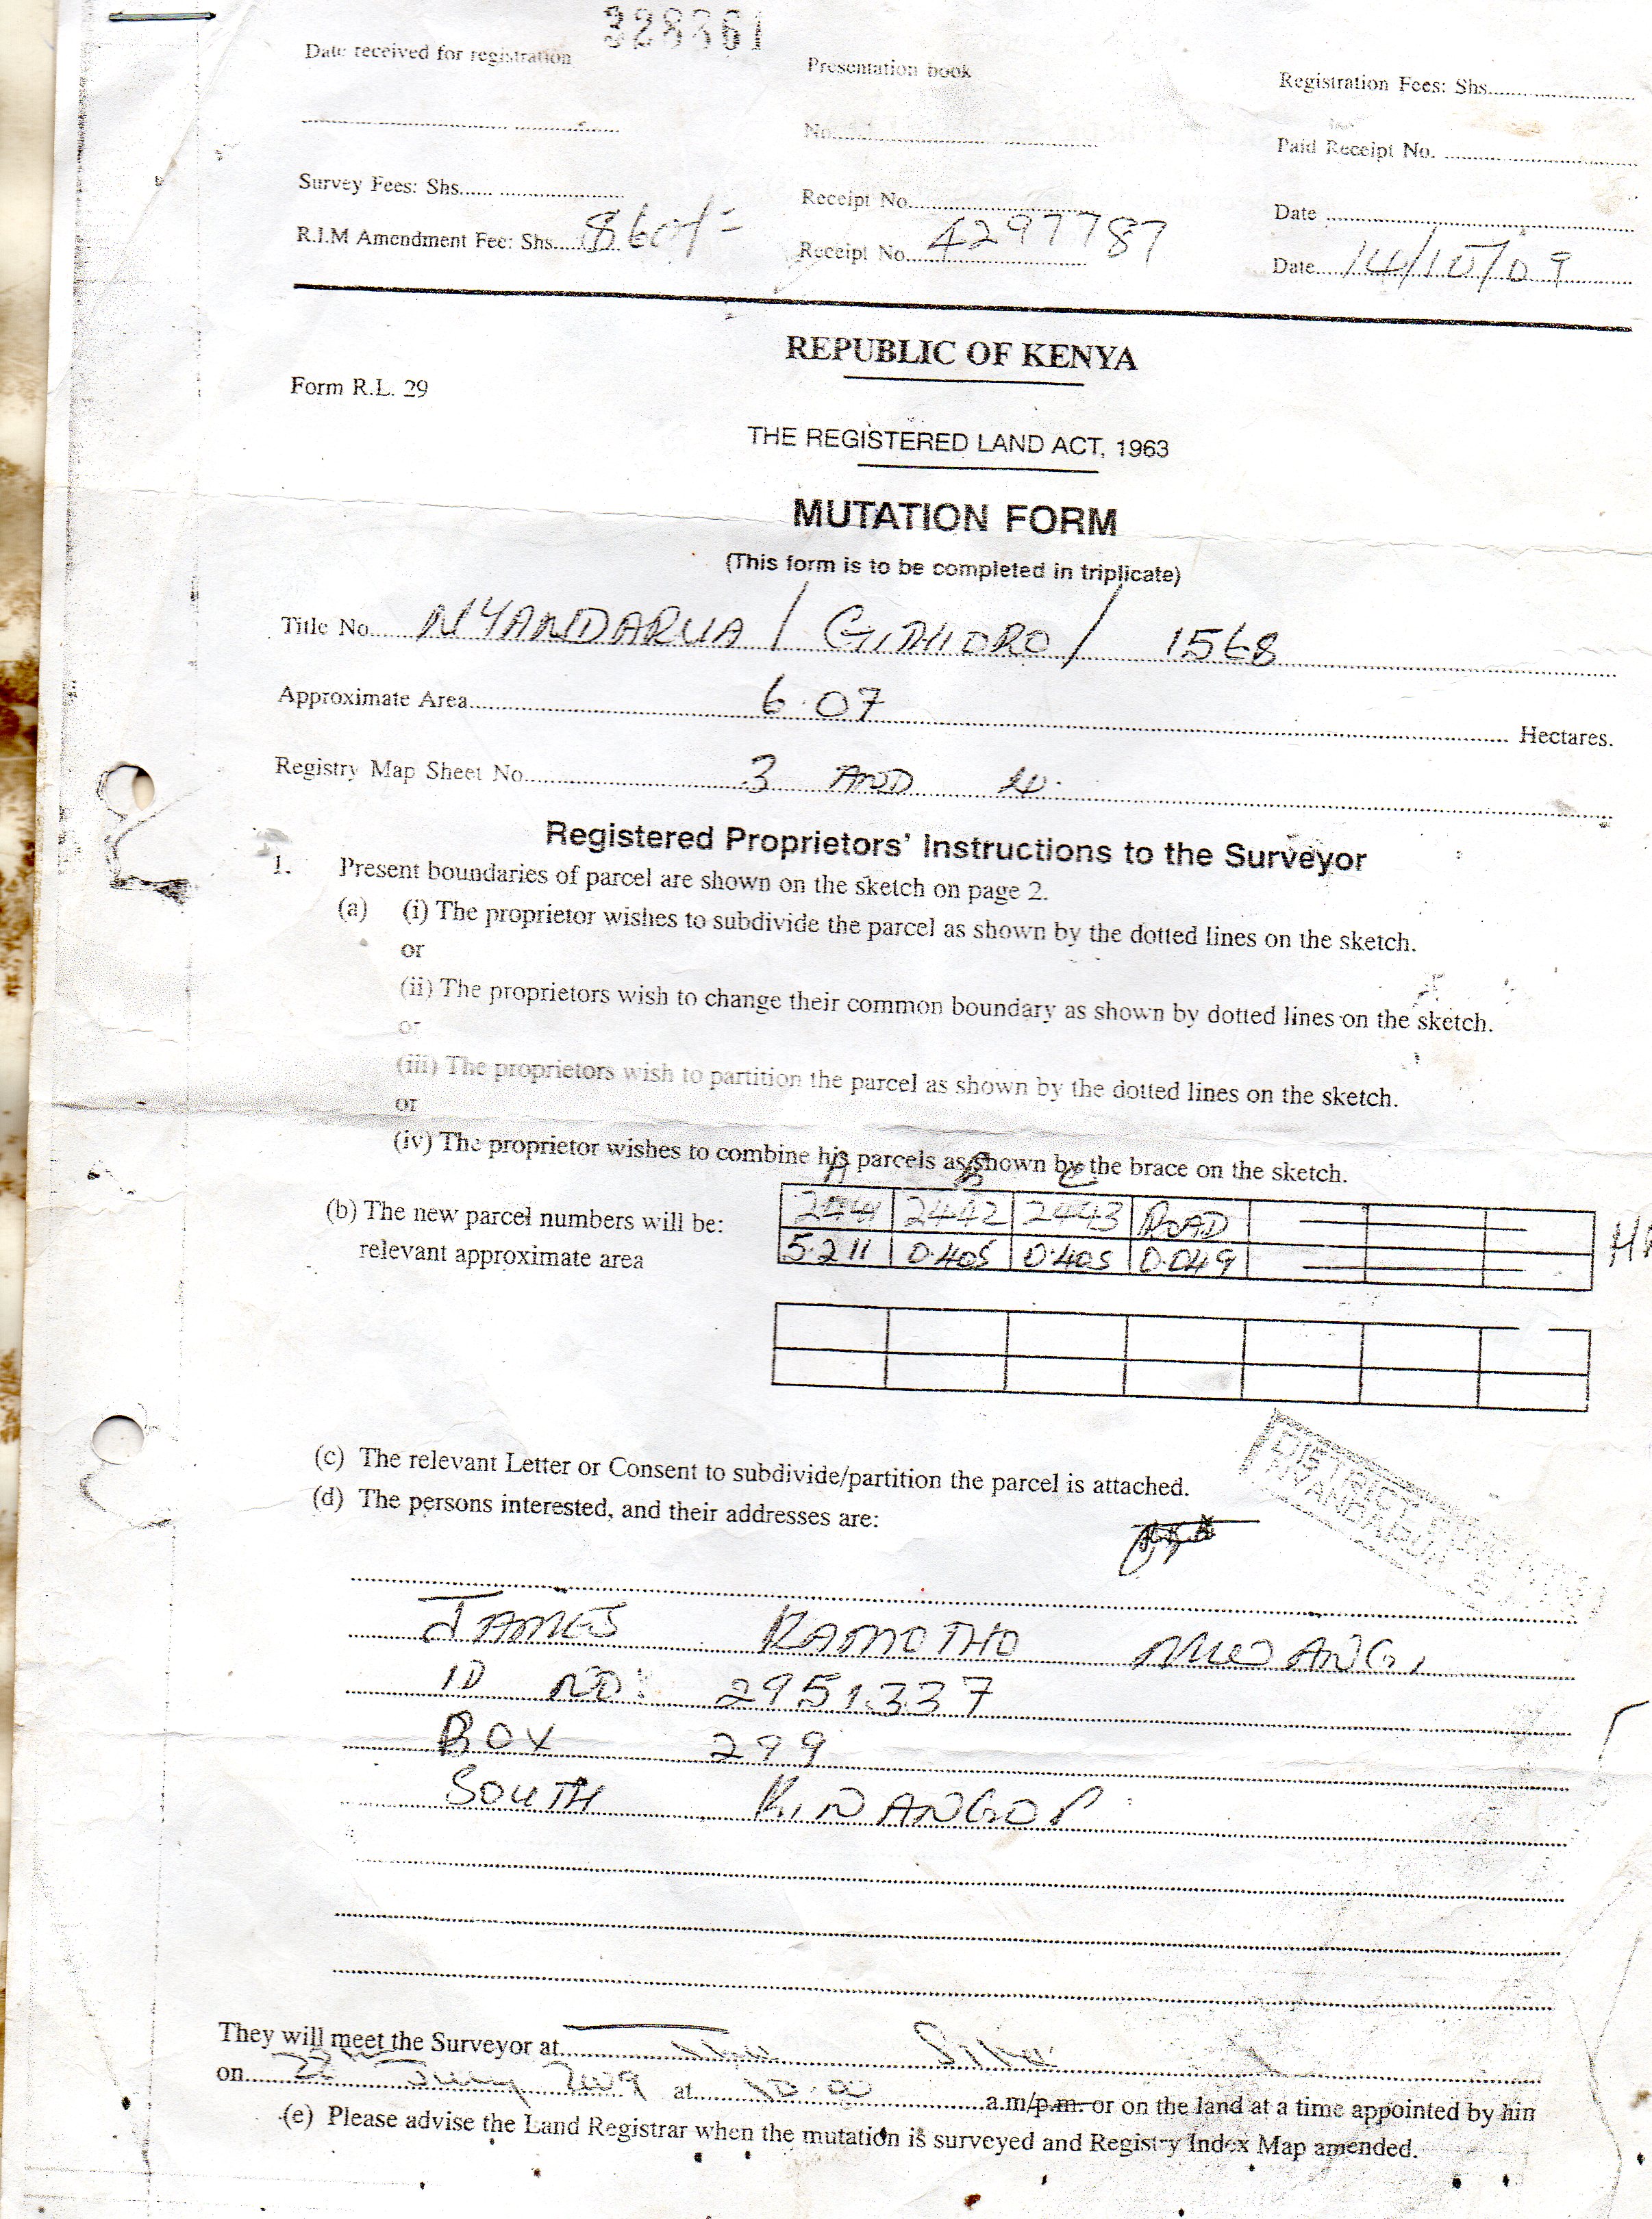 328861
Date received for registration
Presentation book
Registration Fees: Shs
No
Paid Receipt No.
Survey Fees: Shs
Receipt No
Date
R.I.M Amendment Fee: Shs 860/=
Receipt No 4297787
Date 14/10/09
REPUBLIC OF KENYA
Form R.L. 29
THE REGISTERED LAND ACT, 1963
MUTATION FORM
(This form is to be completed in triplicate)
Title No NYANDARUA / GITHIORO / 1568
Approximate Area 6.07 Hectares.
Registry Map Sheet No 3 AND 4.
Registered Proprietors' Instructions to the Surveyor
1. Present boundaries of parcel are shown on the sketch on page 2.
(a) (i) The proprietor wishes to subdivide the parcel as shown by the dotted lines on the sketch.
or
(ii) The proprietors wish to change their common boundary as shown by dotted lines on the sketch.
or
(iii) The proprietors wish to partition the parcel as shown by the dotted lines on the sketch.
or
(iv) The proprietor wishes to combine his parcels as shown by the brace on the sketch.
A B C
(b) The new parcel numbers will be: 2441 2442 2443 ROAD
relevant approximate area 5.211 0.405 0.405 0.049
(c) The relevant Letter or Consent to subdivide/partition the parcel is attached.
(d) The persons interested, and their addresses are:
DISTRICT
NYANDARUA
JAMES KAMOTHO MWANGI
ID NO: 2951337
BOX 299
SOUTH KINANGOP
They will meet the Surveyor at The Site
on 22nd July 2009 at 10.00 a.m/p.m. or on the land at a time appointed by him
(e) Please advise the Land Registrar when the mutation is surveyed and Registry Index Map amended.